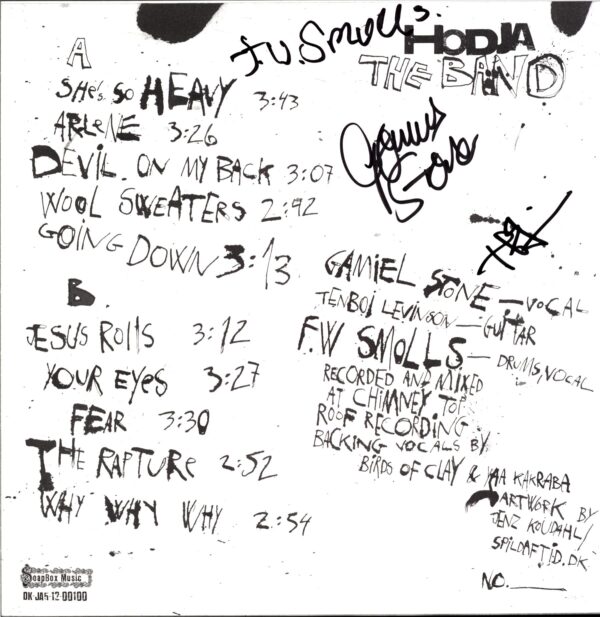 F.W. Smolls.
HODJA
THE BAND
A
SHE'S SO HEAVY 3:43
ARLENE 3:26
DEVIL. ON MY BACK 3:07
WOOL SWEATERS 2:42
GOING DOWN 3:13
B.
JESUS ROLLS 3:12
YOUR EYES 3:27
FEAR 3:30
THE RAPTURE 2:52
WHY WHY WHY 2:54
GAMIEL STONE — VOCAL
TENBOI LEVINSON — GUITAR
F.W SMOLLS — DRUMS, VOCAL
RECORDED AND MIXED
AT CHIMNEY TOP
ROOF RECORDING
BACKING VOCALS BY
BIRDS OF CLAY & YAA KAKRABA
ARTWORK BY
JENZ KOUDAHL/
SPILDAFTID.DK
NO.____
SoapBox Music
DK JA5-12-00100